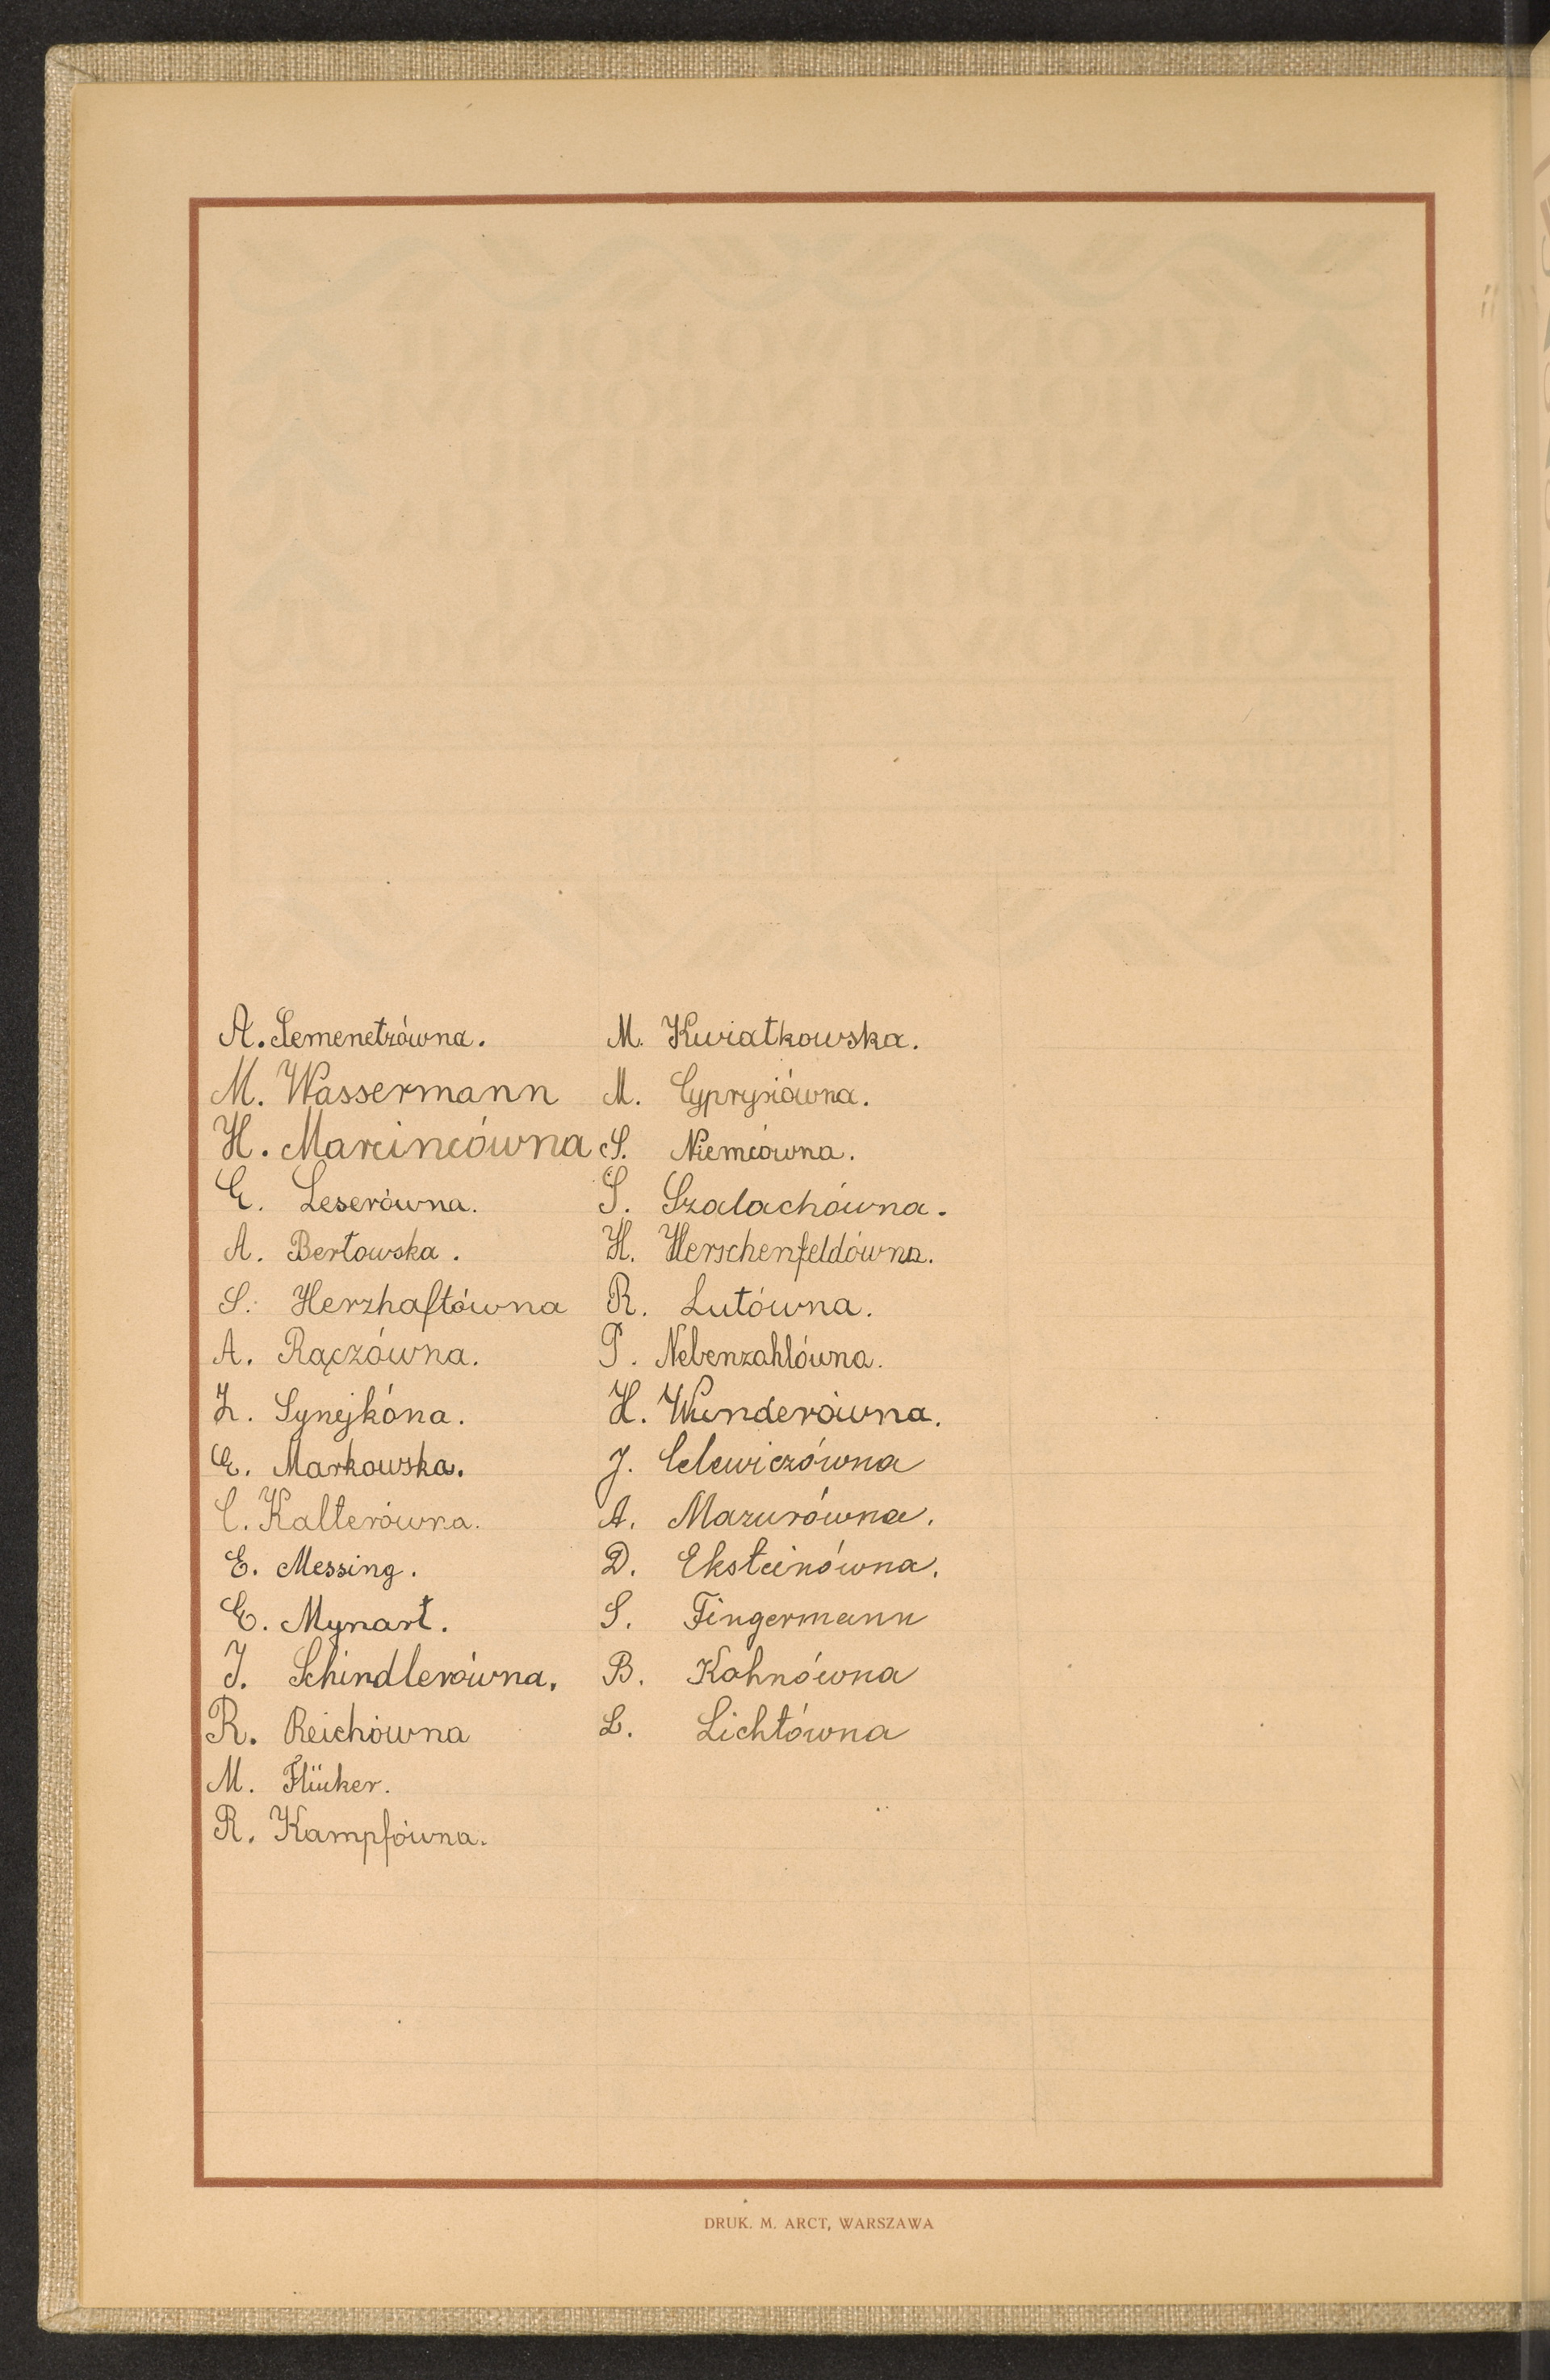 A. Semenetzówna.
M. Wassermann
H. Marcincówna
E. Leserówna.
A. Bertowska.
S. Herzhaftówna
A. Rączówna.
Z. Synejkóna.
E. Markowska.
C. Kalterówna.
E. Messing.
E. Mynart.
J. Schindlerówna.
R. Reichówna
M. Flücker.
R. Kampfówna.
M. Kwiatkowska.
M. Cyprysiówna.
S. Niemcówna.
S. Szalachówna.
H. Herschenfeldówna.
R. Lutówna.
P. Nebenzahlówna.
H. Wunderówna.
J. Celewiczówna
A. Mazurówna.
D. Eksteinówna.
S. Fingermann
B. Kohnówna
L. Lichtówna
DRUK. M. ARCT, WARSZAWA